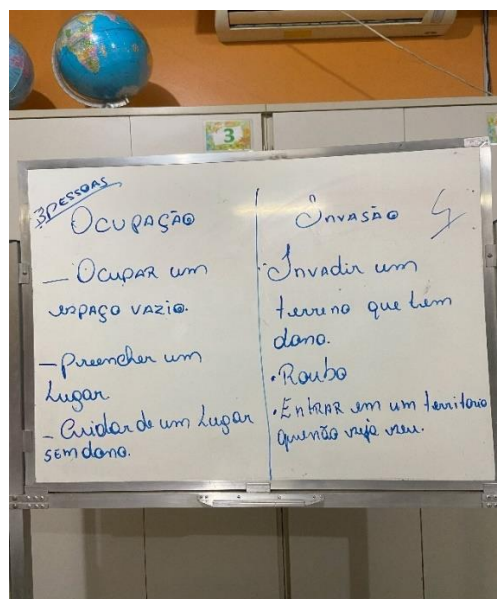 3
3 PESSOAS
OCUPAÇÃO
— OCUPAR um
espaço VAZIO.
- Preencher um
Lugar
- Cuidar de um Lugar
SEM dono.
INVASÃO
4
· Invadir um
terreno que tem
dono.
· Roubo
· ENTRAR em um territorio
que não seja seu.